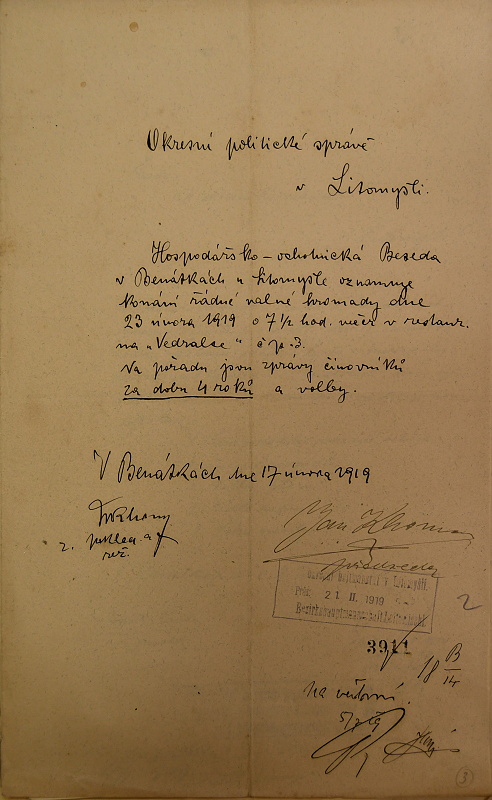 Okresní politické správě
v Litomyšli.
Hospodářsko-ochotnická Beseda
v Benátkách u Litomyšle oznamuje
konání řádné valné hromady dne
23 února 1919 o 7 1/2 hod. večer v restaur.
na „Vedralce" č p. 3.
Na pořadu jsou zprávy činovníků
za dobu 4 roků a volby.
V Benátkách dne 17 února 1919
Jan
předseda
v Litomyšli.
21 II. 1919
Bezirkshauptmannschaft
3911
18 B/14
2
Na
3